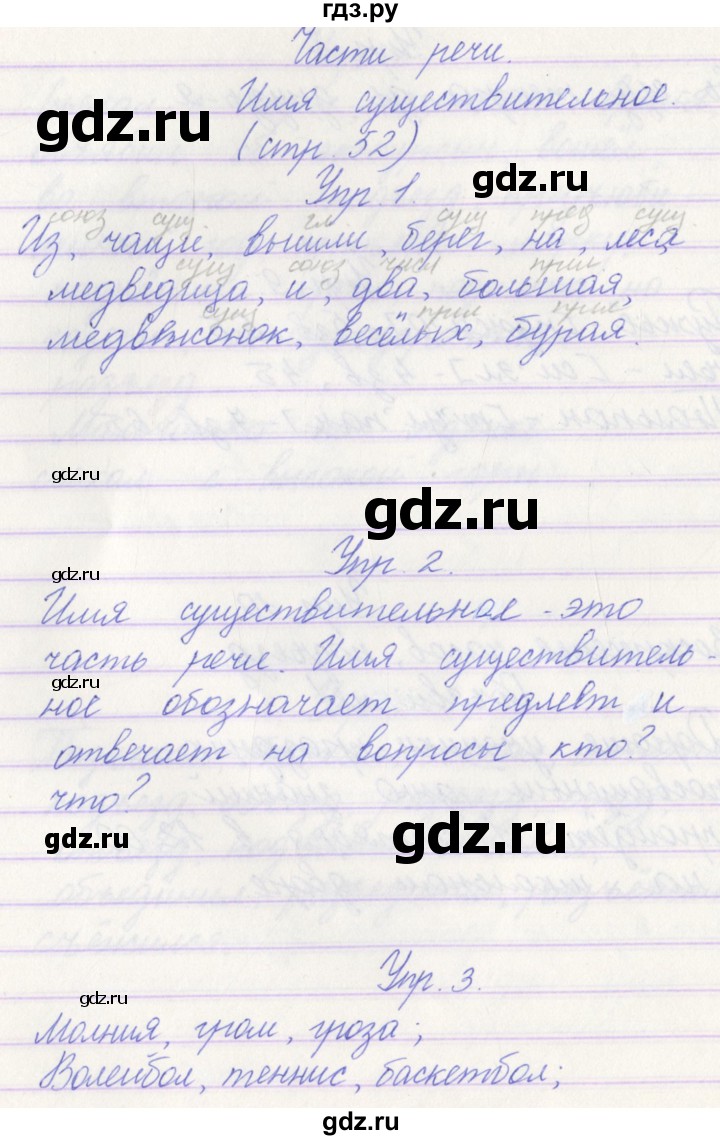 гдз.ру
Части речи.
Имя существительное.
gdz.ru
(стр. 52)
Упр. 1.
gdz.ru
союз сущ. гл сущ пред сущ
Из, чаще, вышли, берег, на, леса
сущ союз числ прил
медведица, и, два, большая,
сущ прил прил
медвежонок, весёлых, бурая.
gdz.ru
gdz.ru
Упр. 2.
gdz.ru
Имя существительная - это
часть речи. Имя существитель-
gdz.ru
ное обозначает предмет и
отвечает на вопросы кто?
что?
gdz.ru
gdz.ru
Упр. 3.
gdz.ru
Молния, гром, гроза;
Волейбол, теннис, баскетбол;
gdz.ru